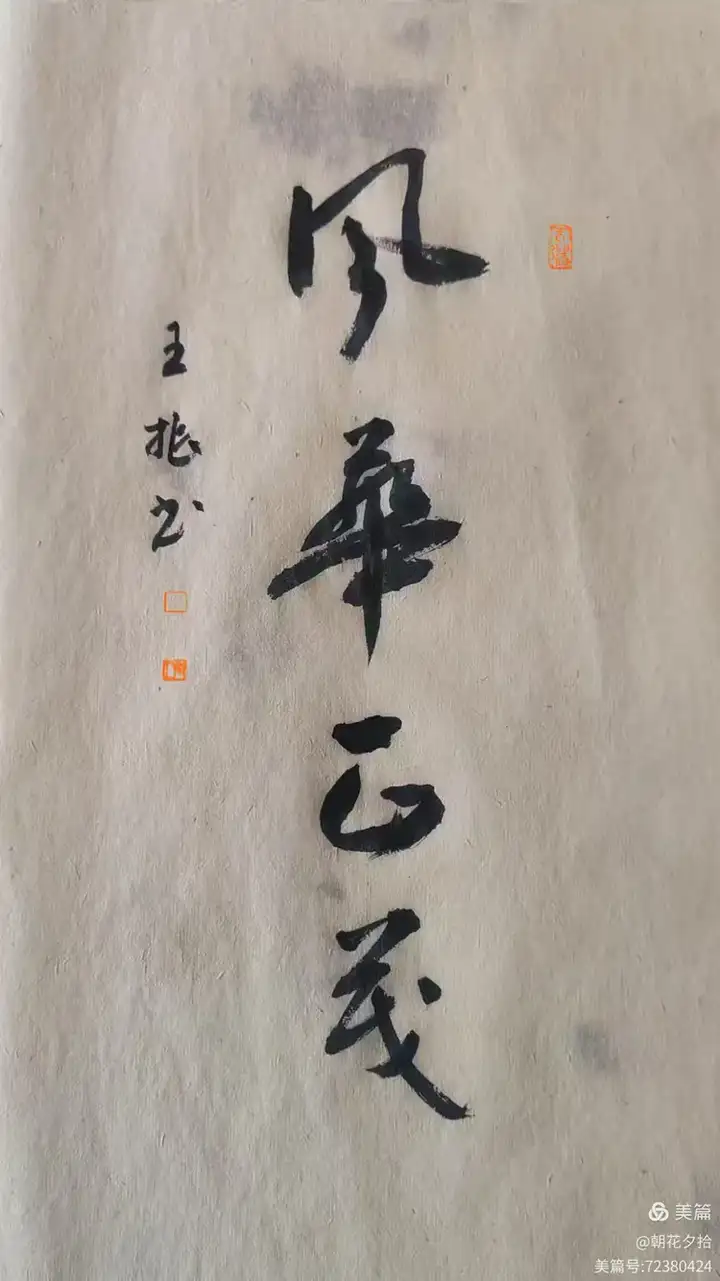 風華正茂
王振书
美篇
@朝花夕拾
美篇号:72380424